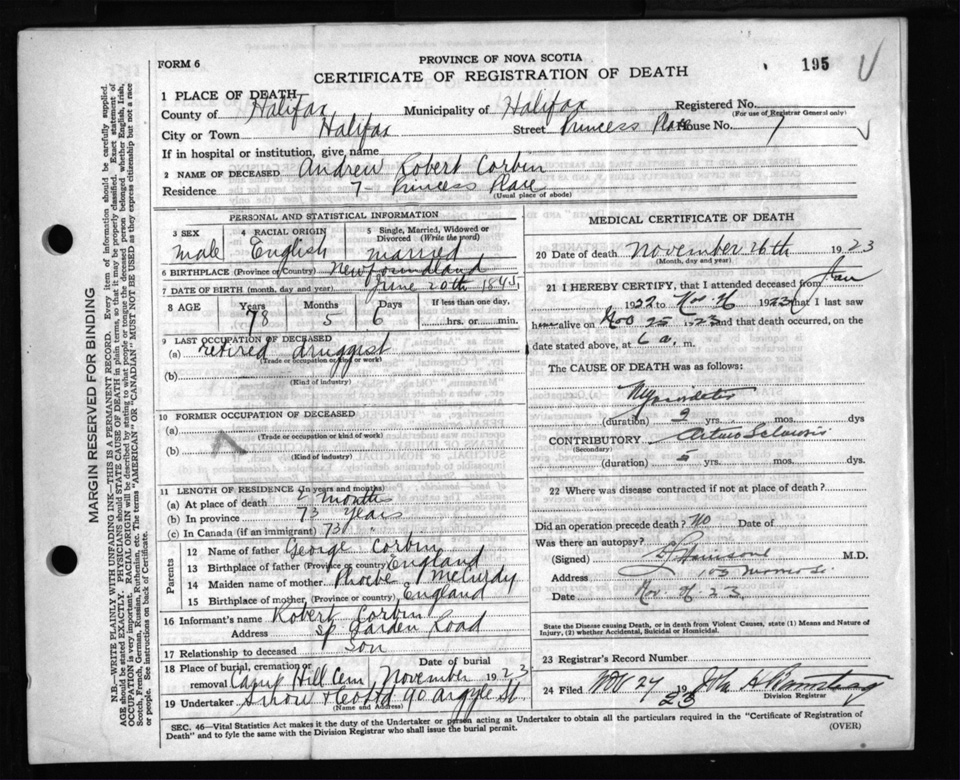 FORM 6
PROVINCE OF NOVA SCOTIA
CERTIFICATE OF REGISTRATION OF DEATH
195
1 PLACE OF DEATH
County of Halifax Municipality of Halifax Registered No.
(For use of Registrar General only)
City or Town Halifax Street Princess Place House No. 7
If in hospital or institution, give name
2 NAME OF DECEASED Andrew Robert Corbin
Residence 7 - Princess Place
(Usual place of abode)
PERSONAL AND STATISTICAL INFORMATION
3 SEX 4 RACIAL ORIGIN 5 Single, Married, Widowed or Divorced (Write the word)
Male English married
6 BIRTHPLACE (Province or Country) Newfoundland
7 DATE OF BIRTH (month, day and year) June 20th 184
8 AGE Years Months Days If less than one day,
78 5 6 hrs. or min.
9 LAST OCCUPATION OF DECEASED
(a) retired druggist
(Trade or occupation or kind or work)
(b)
(Kind of industry)
10 FORMER OCCUPATION OF DECEASED
(a)
(Trade or occupation or kind of work)
(b)
(Kind of industry)
11 LENGTH OF RESIDENCE (In years and months)
(a) At place of death 2 month
(b) In province 73 years
(c) In Canada (if an immigrant) 73 "
Parents
12 Name of father George Corbin
13 Birthplace of father (Province or country) England
14 Maiden name of mother Phoebe McCurdy
15 Birthplace of mother (Province or country) England
16 Informant's name Robert Corbin
Address Sp Garden Road
17 Relationship to deceased Son
18 Place of burial, cremation or removal Camp Hill Cem Date of burial November 1923
19 Undertaker Snow & Co Ltd 90 Argyle St
(Name and Address)
MEDICAL CERTIFICATE OF DEATH
20 Date of death November 26th 1923
(Month, day and year)
21 I HEREBY CERTIFY, that I attended deceased from Jan
1922 to Nov 26 1923 that I last saw
him alive on Nov 25 1923 and that death occurred, on
the date stated above, at 6 a. m.
The CAUSE OF DEATH was as follows:
(duration) 2 yrs. mos. dys
CONTRIBUTORY Arterio Sclerosis
(Secondary)
(duration) 5 yrs. mos. dys.
22 Where was disease contracted if not at place of death?
Did an operation precede death? No Date of
Was there an autopsy?
(Signed) M.D.
Address 103
Date Nov. 26. 23.
State the Disease causing Death, or in death from Violent Causes, state (1) Means and Nature of Injury, (2) whether Accidental, Suicidal or Homicidal.
23 Registrar's Record Number
24 Filed Nov 27 1923 John A
Division Registrar
SEC. 46—Vital Statistics Act makes it the duty of the Undertaker or person acting as Undertaker to obtain all the particulars required in the "Certificate of Registration of
Death" and to fyle the same with the Division Registrar who shall issue the burial permit.
(OVER)
MARGIN RESERVED FOR BINDING
N.B.—WRITE PLAINLY WITH UNFADING INK—THIS IS A PERMANENT RECORD. Every item of information should be carefully supplied.
AGE should be stated EXACTLY. PHYSICIANS should STATE CAUSE OF DEATH in plain terms, so that it may be properly classified. Exact statement of
OCCUPATION is very important. RACIAL ORIGIN will be described by stating to what people or tongue the deceased person belonged whether English, Irish,
Scotch, French, German, Russian, Ruthenian, etc. The terms "AMERICAN" OR "CANADIAN" MUST NOT BE USED as they express citizenship but not a race
or people. See instructions on back of Certificate.